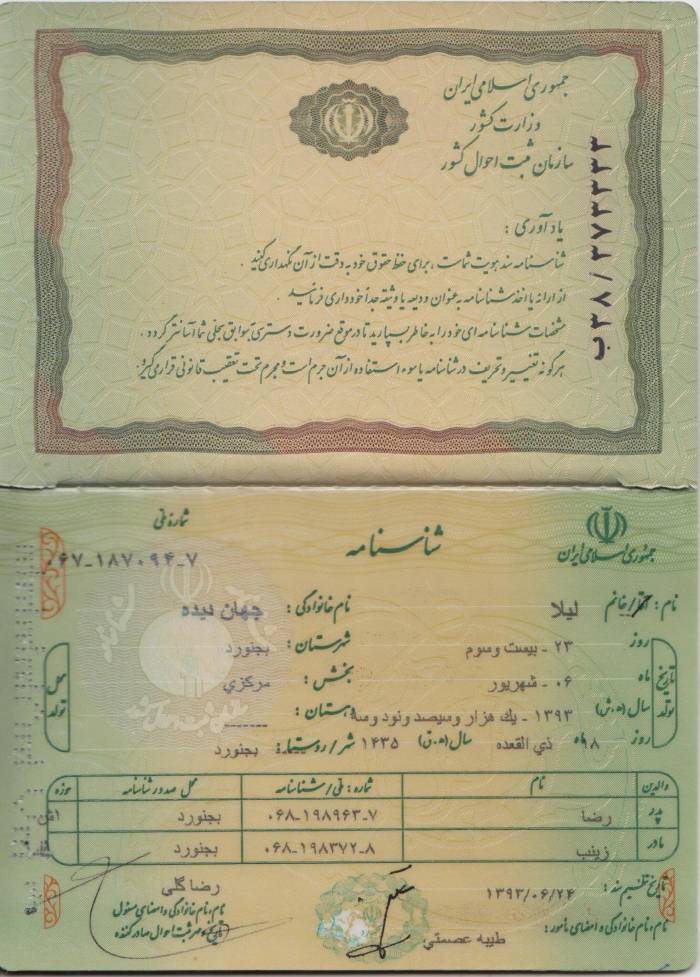 جمهوری اسلامی ایران
وزارت کشور
سازمان ثبت احوال کشور
ب۳۸/۳۷۳۳۳۳
یادآوری :
شناسنامه سند هویت شماست ، برای حفظ حقوق خود به دقت از آن نگهداری کنید .
از ارائه یا اخذ شناسنامه به عنوان ودیعه یا وثیقه جداً خودداری فرمائید .
مشخصات شناسنامه ای خود را به خاطر بسپارید تا در موقع ضرورت دسترسی به سوابق سجلی شما آسانتر گردد .
هرگونه تغییر و تحریف در شناسنامه یا سوء استفاده از آن جرم است و مجرم تحت تعقیب قانونی قرار می گیرد .
جمهوری اسلامی ایران
شناسنامه
شماره ملی
۰۶۷-۱۸۷۰۹۴-۷
نام : آقا/خانم لیلا نام خانوادگی : جهان دیده
تاریخ تولد
روز ۲۳ - بیست وسوم شهرستان : بجنورد
ماه ۰۶ - شهریور بخش : مرکزي
سال (ه.ش) ۱۳۹۳ - یك هزار وسیصد ونود وسه دهستان : -------
روز ۲۸ ماه ذي القعده سال (ه.ق) ۱۴۳۵ شهر/روستا : بجنورد
محل تولد
والدین نام شماره : ملی/شناسنامه محل صدور شناسنامه حوزه
پدر رضا ۰۶۸-۱۹۸۹۶۳-۷ بجنورد
مادر زینب ۰۶۸-۱۹۸۳۷۲-۸ بجنورد
تاریخ تنظیم سند : ۱۳۹۳/۰۶/۲۴
نام، نام خانوادگی و امضای مأمور : طیبه عصمتي
رضا گلي
نام، نام خانوادگی و امضای مسئول